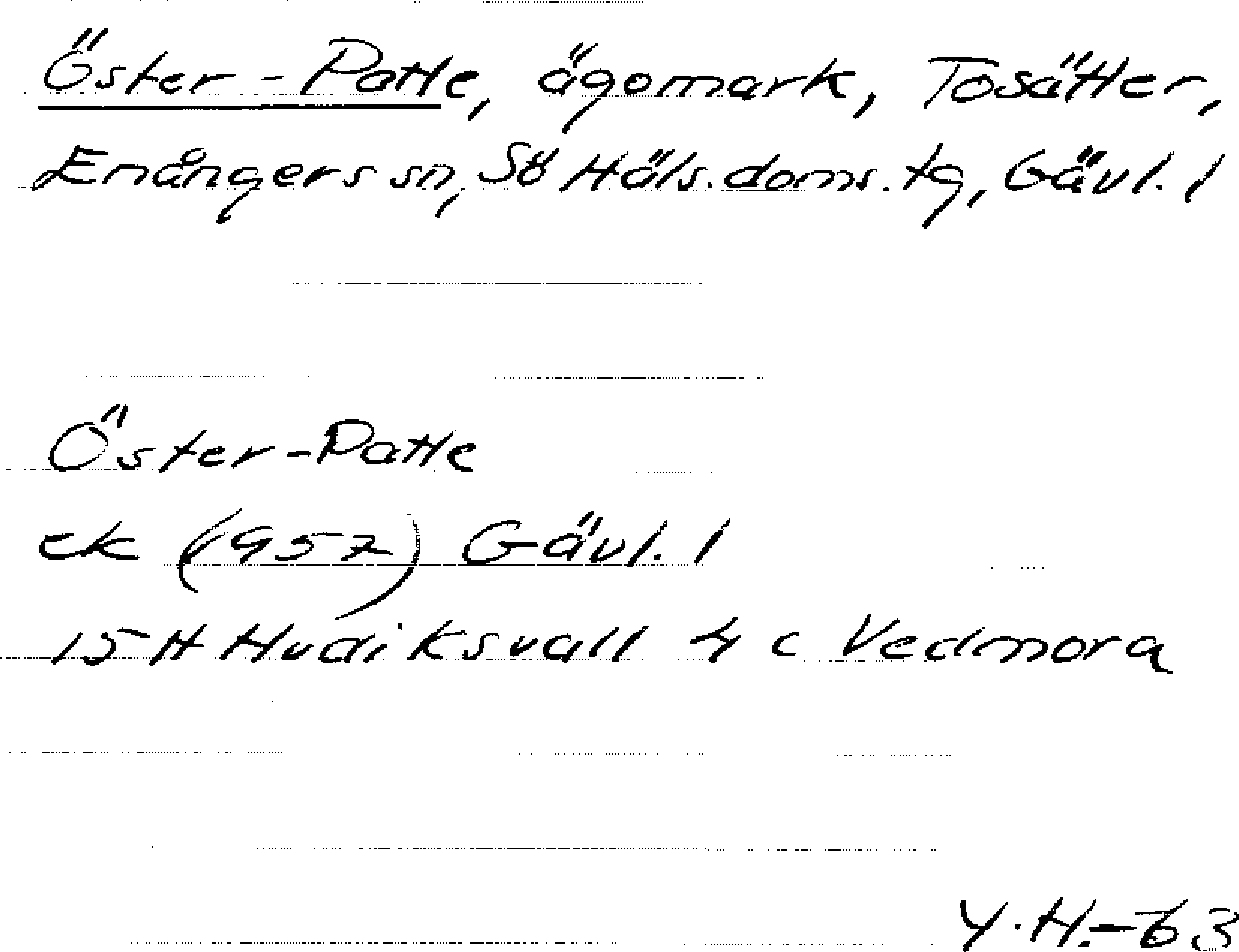 Öster-Patle, ägomark, Tosätter,
Enångers sn, Sö Häls. doms. tg, Gävl. l
Öster-Patle
ek (1957) Gävl. l
15 H Hudiksvall 4 c Vedmora
Y.H.-63